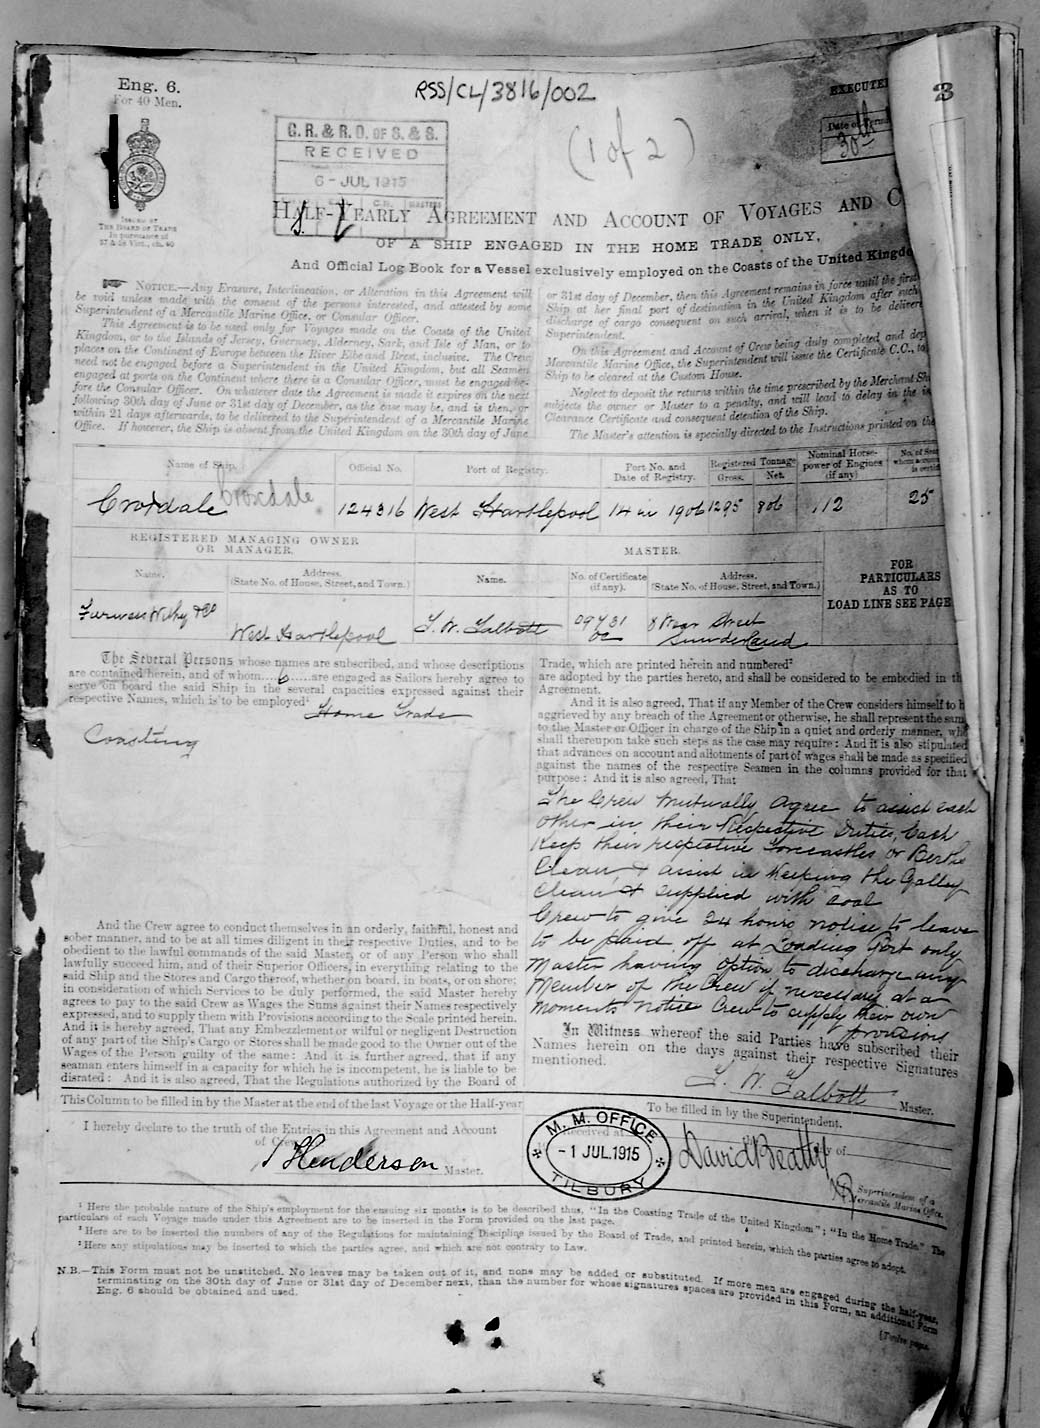 Eng. 6.
For 40 Men.
RSS/CL/3816/002
EXECUTE
3
(1 of 2)
Date of
30th
C. R. & R. O. OF S. & S.
RECEIVED
6 - JUL 1915
ISSUED BY
THE BOARD OF TRADE
In pursuance of
HALF-YEARLY AGREEMENT AND ACCOUNT OF VOYAGES AND C
OF A SHIP ENGAGED IN THE HOME TRADE ONLY,
And Official Log Book for a Vessel exclusively employed on the Coasts of the United Kingdo
NOTICE.—Any Erasure, Interlineation, or Alteration in this Agreement will
be void unless made with the consent of the persons interested, and attested by some
Superintendent of a Mercantile Marine Office, or Consular Officer.
This Agreement is to be used only for Voyages made on the Coasts of the United
Kingdom, or to the Islands of Jersey, Guernsey, Alderney, Sark, and Isle of Man, or to
places on the Continent of Europe between the River Elbe and Brest, inclusive. The Crew
need not be engaged before a Superintendent in the United Kingdom, but all Seamen
engaged at ports on the Continent where there is a Consular Officer, must be engaged be-
fore the Consular Officer. On whatever date the Agreement is made it expires on the next
following 30th day of June or 31st day of December, as the case may be, and is then, or
within 21 days afterwards, to be delivered to the Superintendent of a Mercantile Marine
Office. If however, the Ship is absent from the United Kingdom on the 30th day of June
or 31st day of December, then this Agreement remains in force until the first
Ship at her final port of destination in the United Kingdom after such
discharge of cargo consequent on such arrival, when it is to be deliver
Superintendent.
On this Agreement and Account of Crew being duly completed and dep
Mercantile Marine Office, the Superintendent will issue the Certificate C.C., to
Ship to be cleared at the Custom House.
Neglect to deposit the returns within the time prescribed by the Merchant Sh
subjects the owner or Master to a penalty, and will lead to delay in the is
Clearance Certificate and consequent detention of the Ship.
The Master's attention is specially directed to the Instructions printed on the
Name of Ship. Official No. Port of Registry. Port No. and Date of Registry. Registered Tonnage Gross. Net. Nominal Horse-power of Engines (if any) No. of Sea
Croxdale Croxdale 124316 West Hartlepool 14 in 1906 1295 806 112 25
REGISTERED MANAGING OWNER
OR MANAGER.
MASTER.
FOR
PARTICULARS
AS TO
LOAD LINE SEE PAGE
Name. Address. (State No. of House, Street, and Town.) Name. No. of Certificate (if any). Address. (State No. of House, Street, and Town.)
Furness Withy & Co West Hartlepool T. W. Talbott 8 Wear Street
Sunderland
The Several Persons whose names are subscribed, and whose descriptions
are contained herein, and of whom....6.....are engaged as Sailors hereby agree to
serve on board the said Ship in the several capacities expressed against their
respective Names, which is to be employed¹ Home Trade
Coasting
And the Crew agree to conduct themselves in an orderly, faithful, honest and
sober manner, and to be at all times diligent in their respective Duties, and to be
obedient to the lawful commands of the said Master, or of any Person who shall
lawfully succeed him, and of their Superior Officers, in everything relating to the
said Ship and the Stores and Cargo thereof, whether on board, in boats, or on shore;
in consideration of which Services to be duly performed, the said Master hereby
agrees to pay to the said Crew as Wages the Sums against their Names respectively
expressed, and to supply them with Provisions according to the Scale printed herein.
And it is hereby agreed, That any Embezzlement or wilful or negligent Destruction
of any part of the Ship's Cargo or Stores shall be made good to the Owner out of the
Wages of the Person guilty of the same: And it is further agreed, that if any
seaman enters himself in a capacity for which he is incompetent, he is liable to be
disrated: And it is also agreed, That the Regulations authorized by the Board of
Trade, which are printed herein and numbered²
are adopted by the parties hereto, and shall be considered to be embodied in th
Agreement.
And it is also agreed, That if any Member of the Crew considers himself to b
aggrieved by any breach of the Agreement or otherwise, he shall represent the sam
to the Master or Officer in charge of the Ship in a quiet and orderly manner, wh
shall thereupon take such steps as the case may require: And it is also stipulated
that advances on account and allotments of part of wages shall be made as specified
against the names of the respective Seamen in the columns provided for that
purpose: And it is also agreed, That
The Crew Mutually Agree to assist each
other in their Respective Duties, Each
Keep their respective Forecastles or Berths
Clean & assist in keeping the Galley
Clean & supplied with coal
Crew to give 24 hours notise to leave
to be paid off at Loading Port only
Master having option to discharge any
Member of the Crew if necessary at a
Moments Notise Crew to supply their own
provisions
In Witness whereof the said Parties have subscribed their
Names herein on the days against their respective Signatures
mentioned.
T. W. Talbott Master.
This Column to be filled in by the Master at the end of the last Voyage or the Half-year
I hereby declare to the truth of the Entries in this Agreement and Account
of Crew
Henderson Master.
To be filled in by the Superintendent.
Received at
M. M. OFFICE
- 1 JUL. 1915
TILBURY
David Beatty
Superintendent of a
Mercantile Marine Office.
¹ Here the probable nature of the Ship's employment for the ensuing six months is to be described thus, "In the Coasting Trade of the United Kingdom"; "In the Home Trade." The
particulars of each Voyage made under this Agreement are to be inserted in the Form provided on the last page.
² Here are to be inserted the numbers of any of the Regulations for maintaining Discipline issued by the Board of Trade, and printed herein, which the parties agree to adopt.
³ Here any stipulations may be inserted to which the parties agree, and which are not contrary to Law.
N.B.—This Form must not be unstitched. No leaves may be taken out of it, and none may be added or substituted. If more men are engaged during the half-year,
terminating on the 30th day of June or 31st day of December next, than the number for whose signatures spaces are provided in this Form, an additional Form
Eng. 6 should be obtained and used.
[Twelve pages.